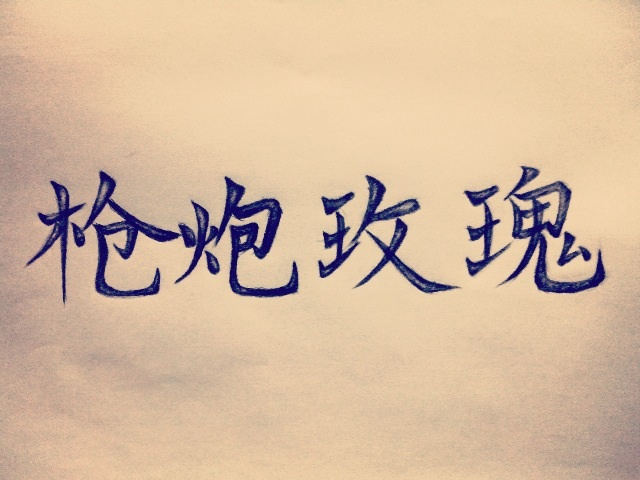 枪炮玫瑰